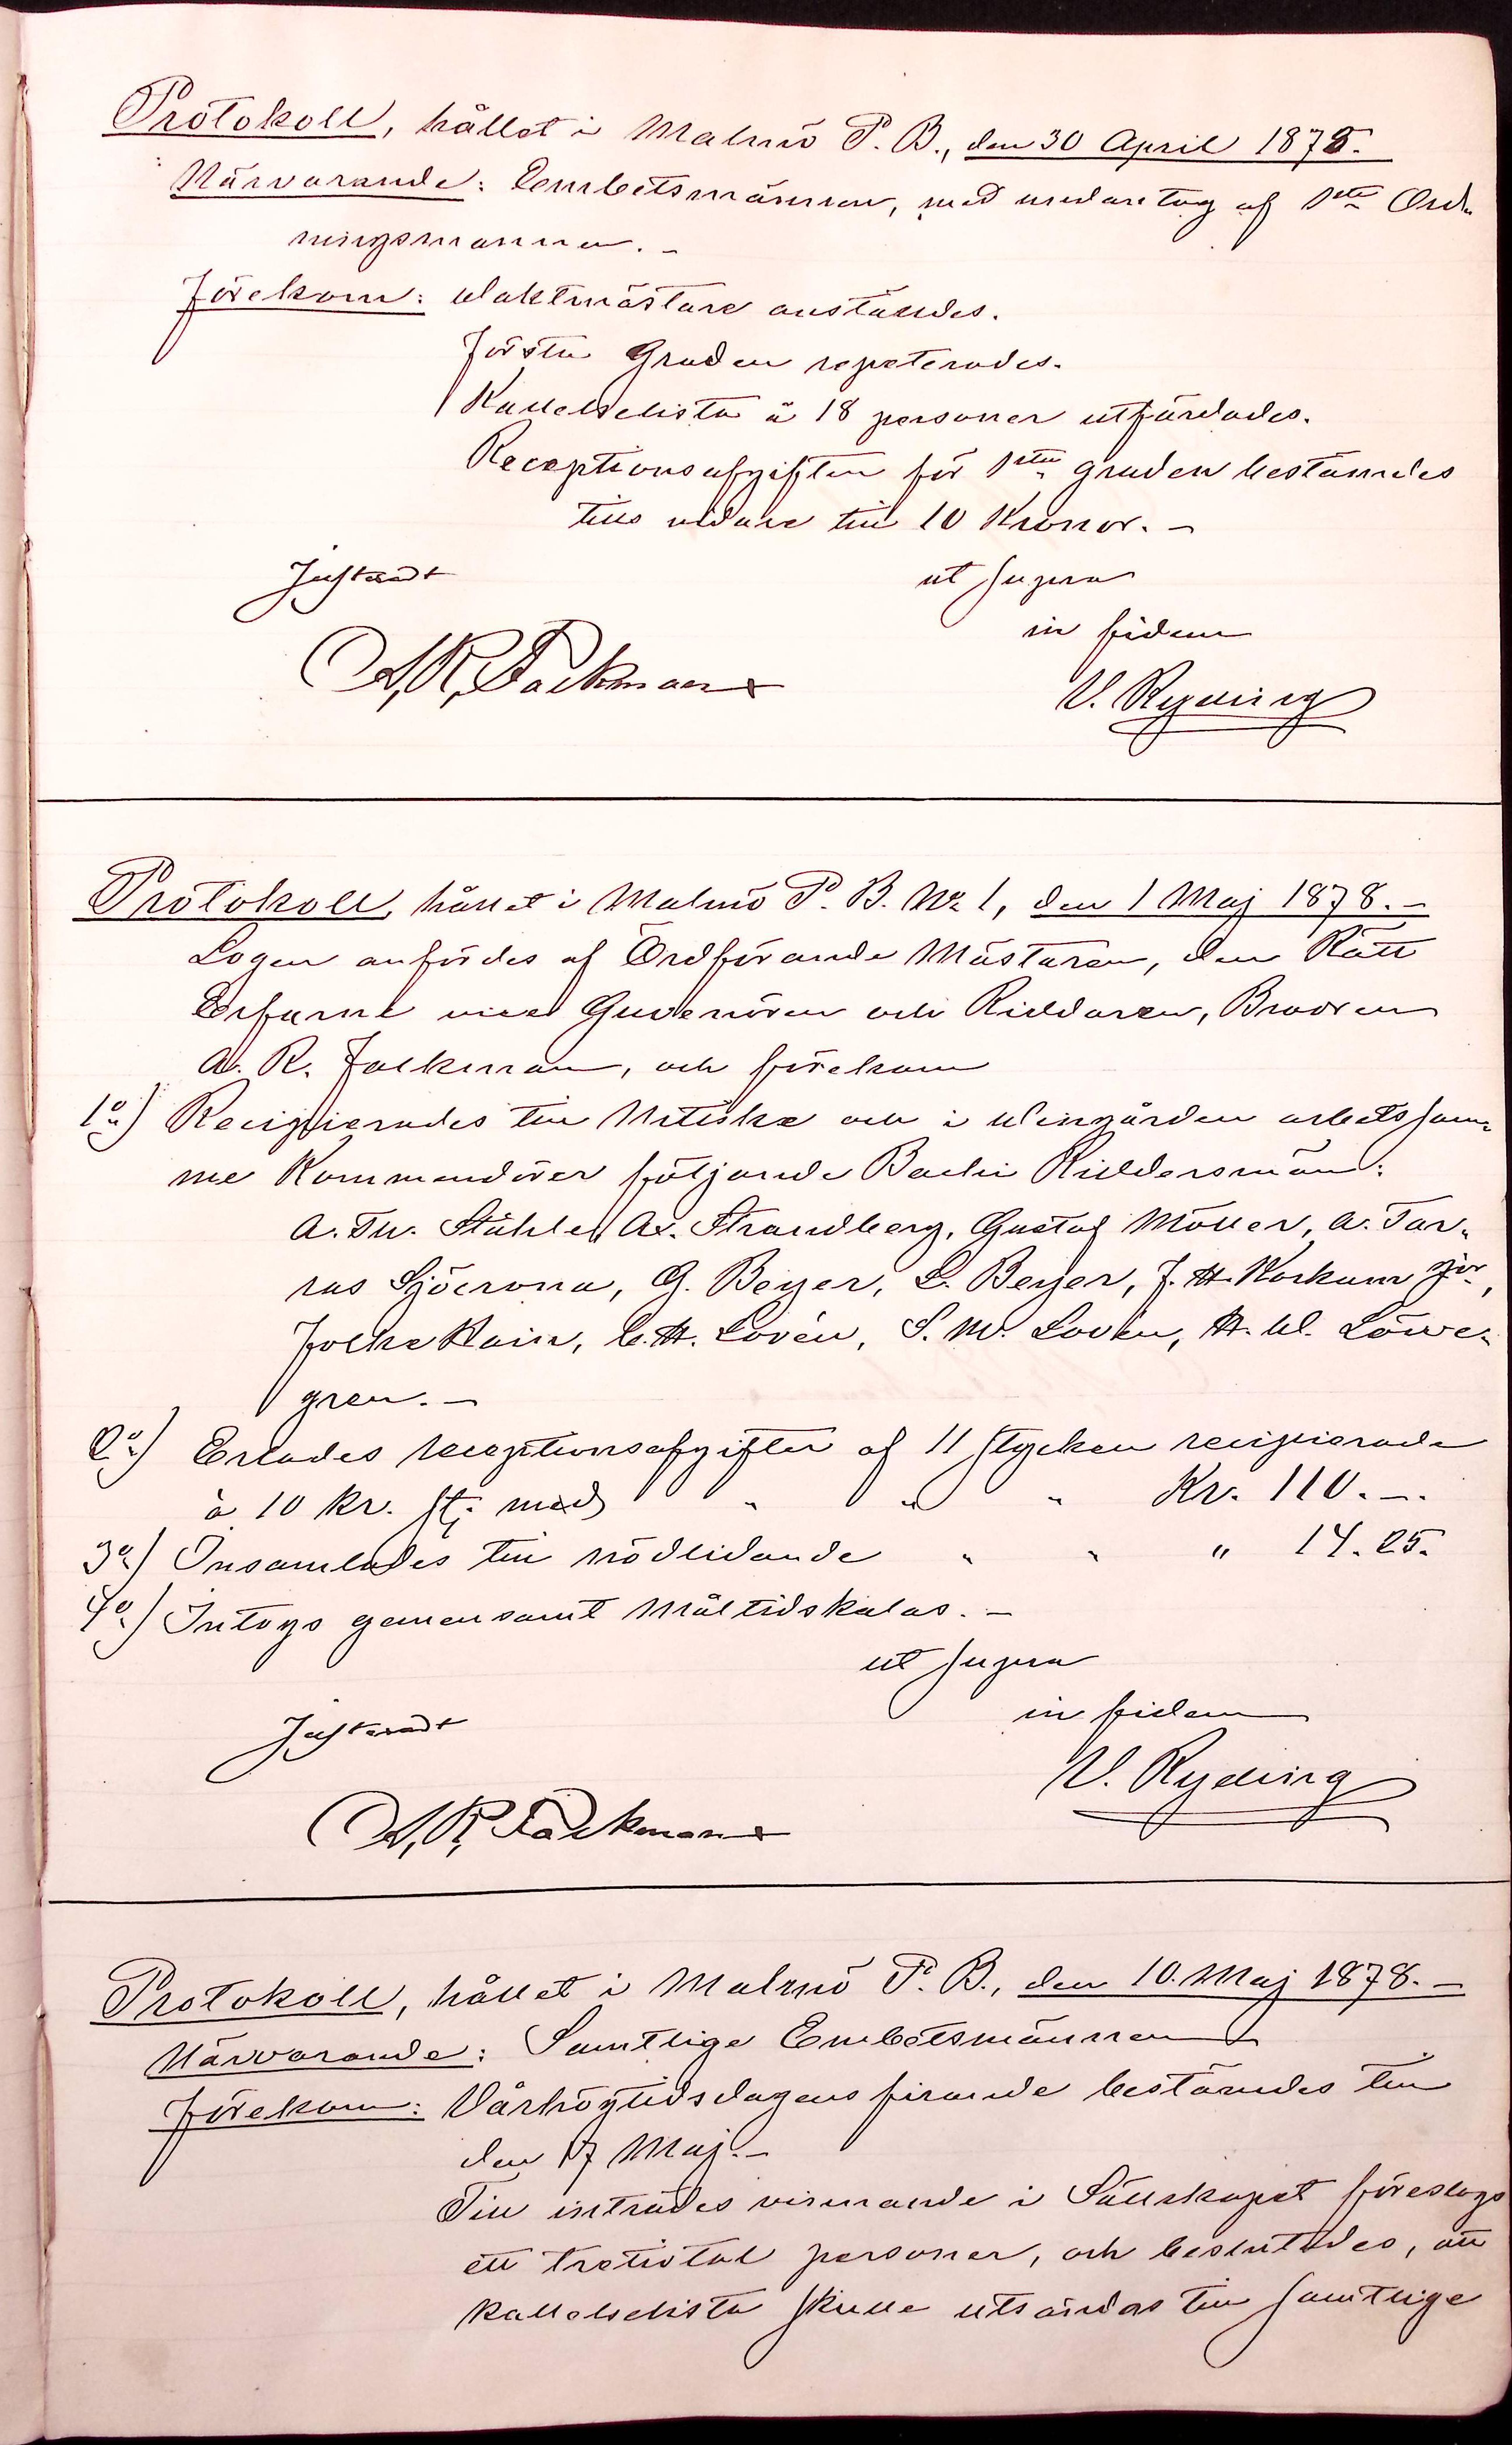 Protokoll, hållet i Malmö P. B., den 30 April 1878.
Närvarande: Embetsmännen, med undantag af 1sta Ord-
ningsmannen. –
Förekom: Waktmästare anstäldes.
Första Graden repeterades.
Kallelselista å 18 personer utfärdades.
Receptionsafgiften för 1sta graden bestämdes
tills vidare till 10 Kronor. –
Justeradt
ut supra
in fidem
A. R. Falkman
V. Ryding
Protokoll, hållet i Malmö P. B. No 1, den 1 Maj 1878. –
Logen anfördes af Ordförande Mästaren, den Rätt
Erfarne vice Guvernören och Riddaren, Brodren
A. R. Falkman, och förekom
1o) Recipierades till Nitiske och i Wingården arbetssam-
me Kommendörer följande Bachi Riddersmän:
A. Th. Ståhle, Ax. Strandberg, Gustaf Möller, A. Tor-
ras Sjöcrona, G. Beyer, L. Beyer, F. H. Kockum jor,
Folke Hain, C. H. Lovén, S. M. Lovén, H. W. Löwe-
gren. –
2o) Erlades receptionsafgifter af 11 stycken recipierade
à 10 Kr. st. med " " " Kr. 110. –.
3o) Insamlades till nödlidande " " " 14. 25.
4o) Intogs gemensamt Måltidskalas. –
ut supra
in fidem
Justeradt
V. Ryding
A. R. Falkman
Protokoll, hållet i Malmö P. B., den 10. Maj 1878. –
Närvarande: Samtlige Embetsmännen
Förekom: Vårhögtidsdagens firande bestämdes till
den 17 Maj. –
Till inträdes vinnande i Sällskapet föreslogs
ett tretiotal personer, och beslutades, att
kallelselista skulle utsändas till samtlige